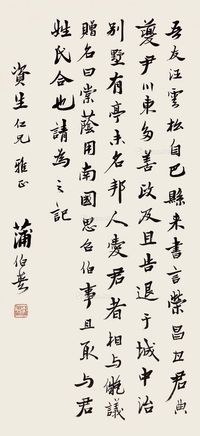 吾友汪雲松自巴縣來書言榮昌甘君典
夔尹川東多善政及且告退于城中治
別墅有亭未名邦人愛君者相与儗議
贈名曰棠蔭用南國思召伯事且取与君
姓氏合也請為之記
資生仁兄雅正
蒲伯英